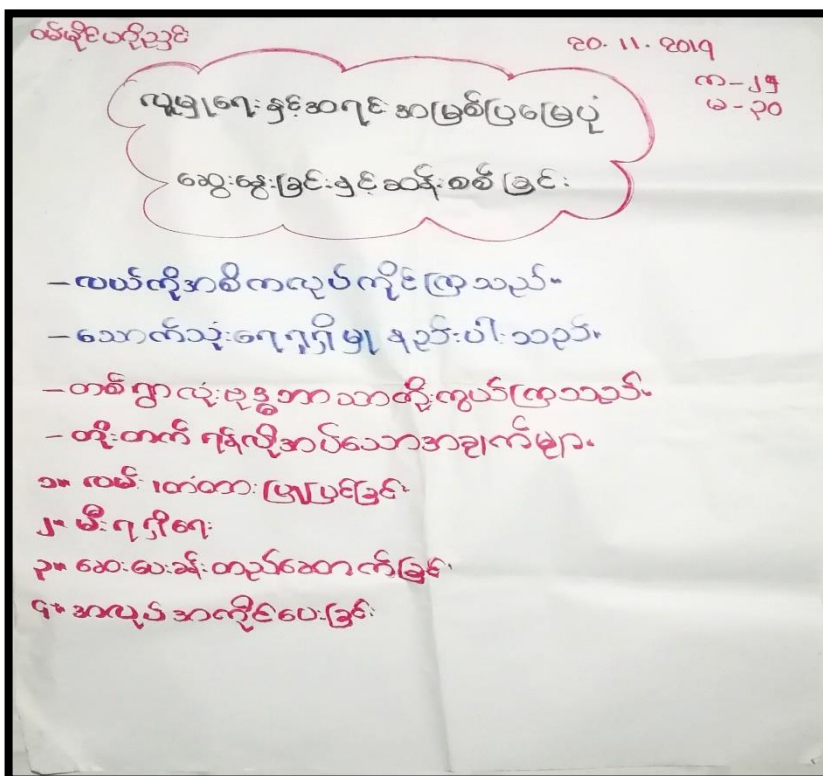 ဝမ်ဖိုင်ပင်ဉီညှင်
20. 11. 2019
က-၂၅
မ-၃၀
လူမှုရေးနှင့်အရင်းအမြစ်ပြမြေပုံ
ဆွေးနွေးခြင်းနှင့်ဆန်းစစ်ခြင်း
-လယ်ကိုအဓိကလုပ်ကိုင်ကြသည်။
-သောက်သုံးရေရရှိမှု နည်းပါးသည်။
-တစ်ရွာလုံးဗုဒ္ဓဘာသာကိုးကွယ်ကြသည်။
-တိုးတက် ရန်လိုအပ်သောအချက်များ
၁။ လမ်း၊တံတားပြုပြင်ခြင်း
၂။ မီးရရှိရေး
၃။ ဆေးပေးခန်းတည်ဆောက်ခြင်း
၄။ အလုပ်အကိုင်ပေးခြင်း